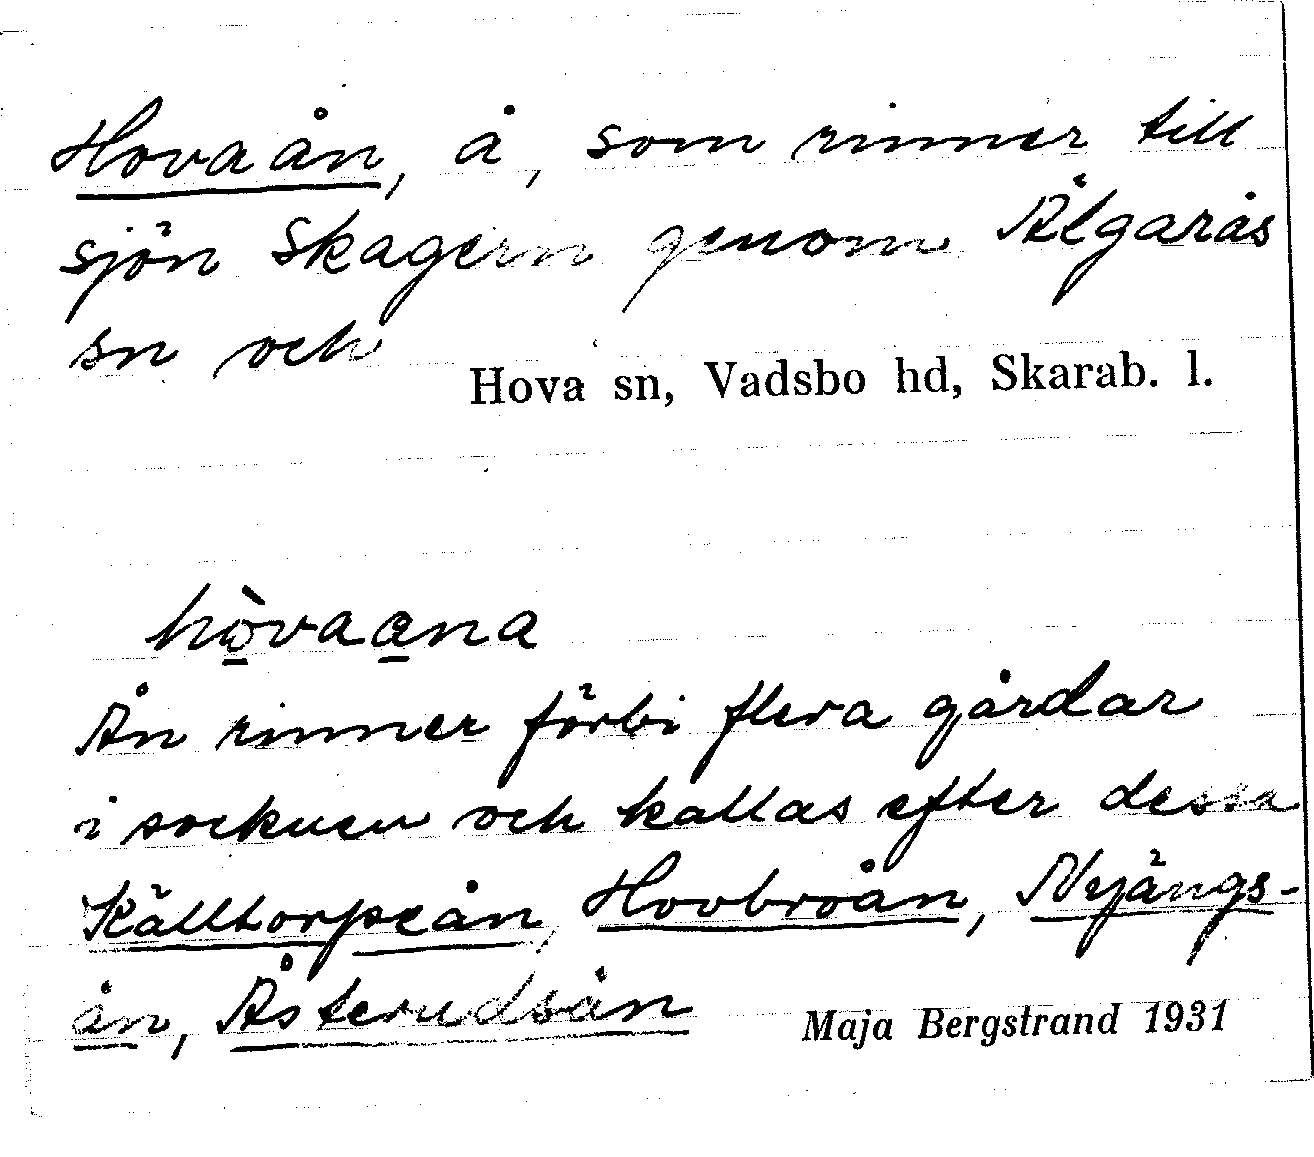 Hovaån, å, som rinner till
sjön Skagern genom Älgarås
sn och
Hova sn, Vadsbo hd, Skarab. l.
hò̱vaa̱na
Ån rinner förbi flera gårdar
i socknen och kallas efter dessa
Källtorpeån, Hovbroån, Nyängs-
ån, Åsterudsån
Maja Bergstrand 1931